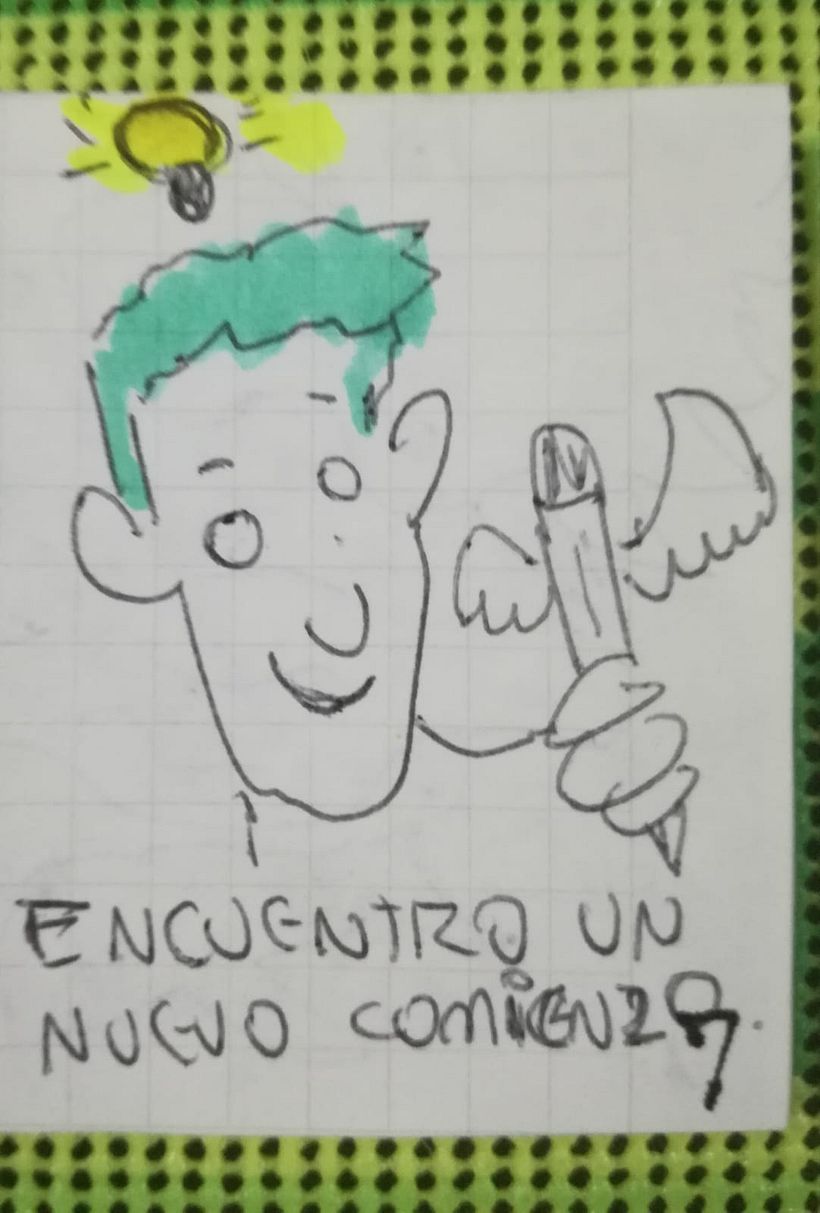 ENCUENTRO UN
NUEVO COMiENZO.